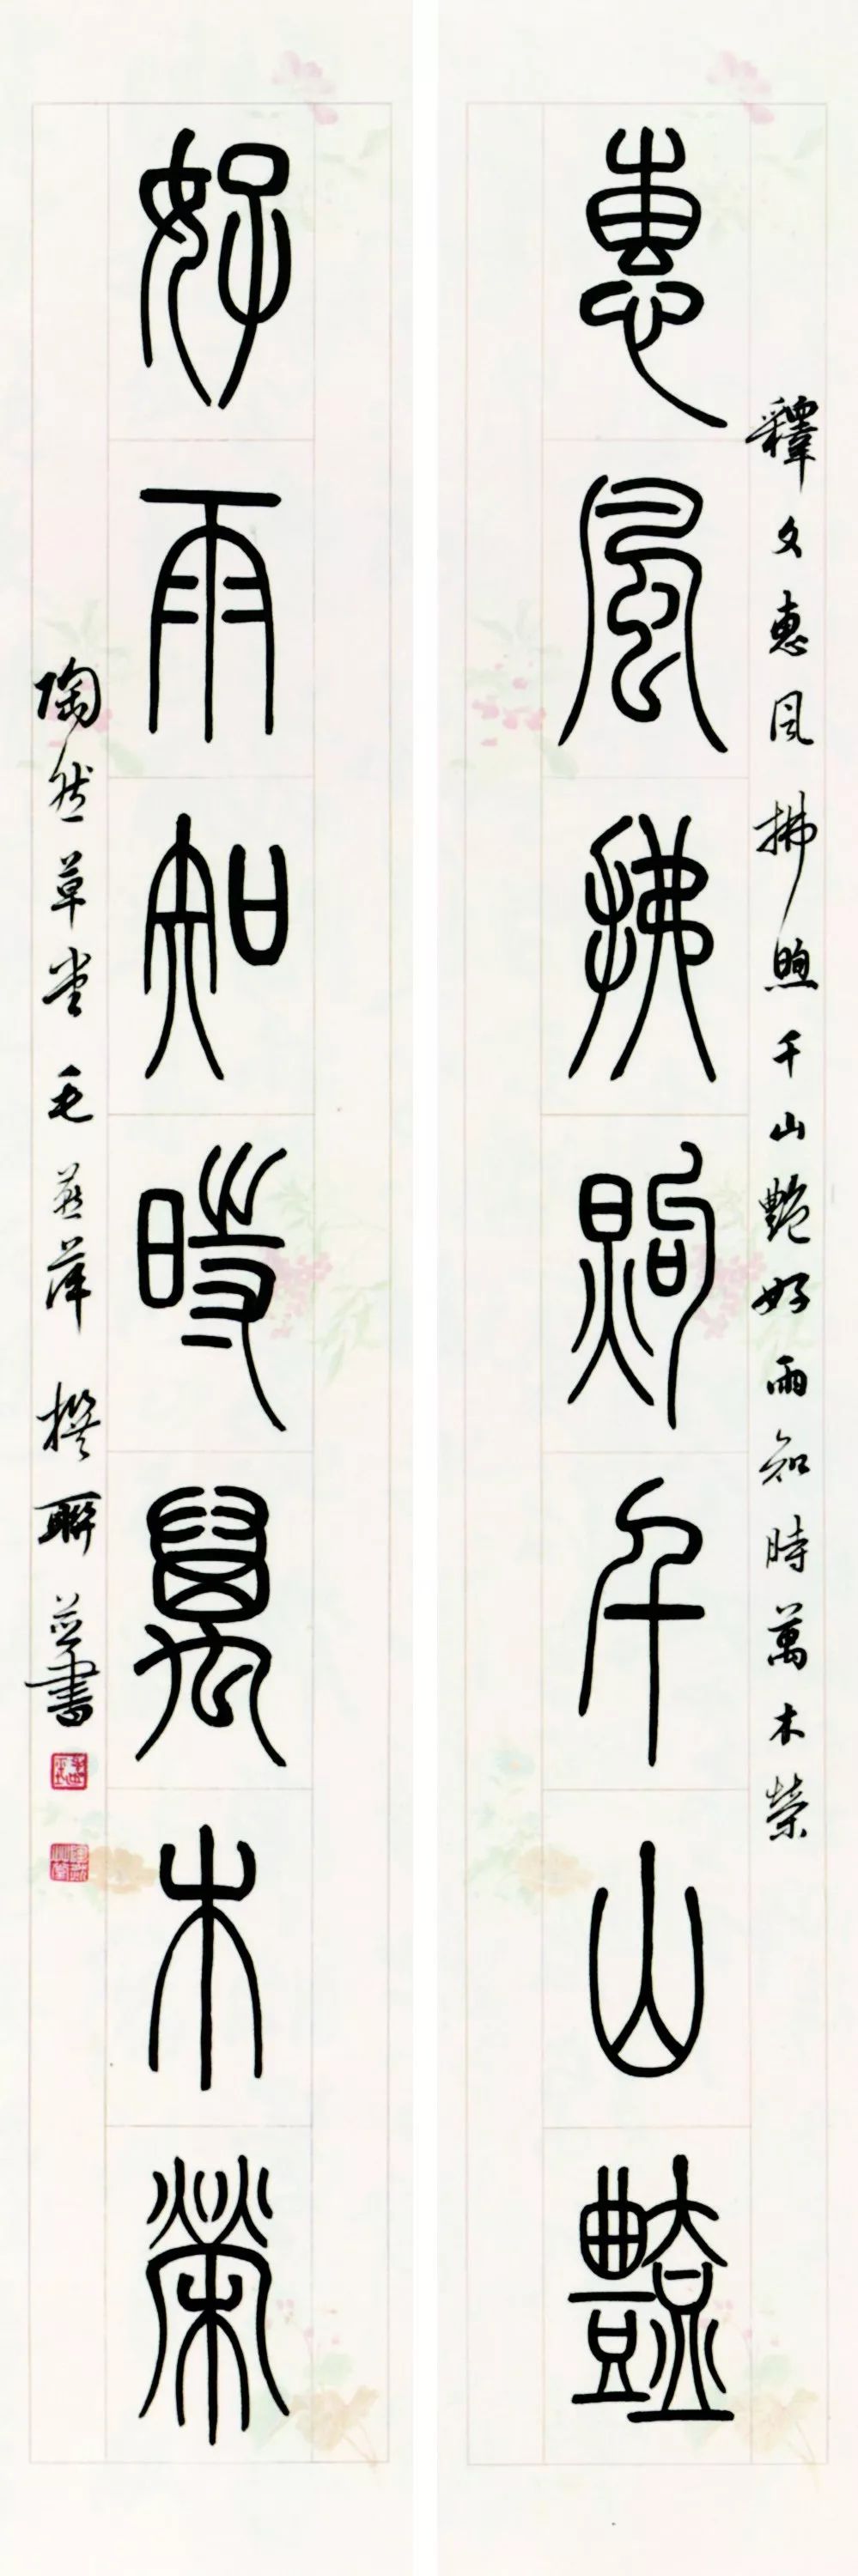 釋文惠風拂煦千山艷好雨知時萬木榮
惠風拂煦千山豔
好雨知時萬木榮
陶然草堂毛燕萍撰聯並書